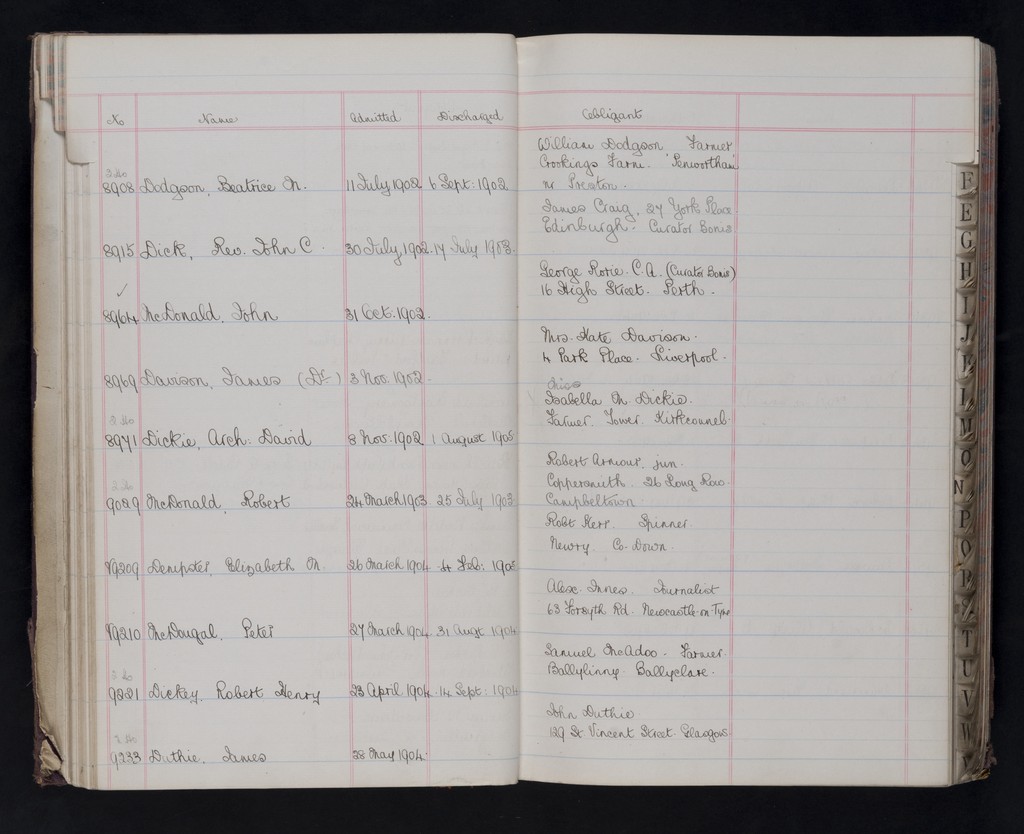 No Name Admitted Discharged Obligant
William Dodgson Farmer
Crookings Farm. Penwortham
8908 Dodgson, Beatrice M. 11 July 1902 6 Sept: 1902 nr Preston.
James Craig, 27 York Place
Edinburgh. Curator Bonis
8915 Dick, Rev. John C. 30 July 1902. 17 July 1903.
George Rorie. C.A. (Curator Bonis)
16 High Street. Perth.
8964 McDonald, John 31 Oct. 1902.
Mrs. Kate Davison.
4 Park Place. Liverpool.
8969 Davison, James (Dr) 3 Nov. 1902.
Miss
Isabella M. Dickie.
Farmer. Tower. Kirkconnel.
8971 Dickie, Arch: David 8 Nov: 1902 1 August 1905
Robert Armour, jun.
Coppersmith. 26 Long Row.
9029 McDonald, Robert 24 March 1903. 25 July 1903. Campbeltown
Robt Kerr. Spinner.
Newry. Co. Down.
9209 Dempster, Elizabeth M. 26 March 1904 4 Feb: 1905
Alex. Innes. Journalist
63 Forsyth Rd. Newcastle on Tyne
9210 McDougal, Peter 27 March 1904. 31 Augt 1904
Samuel McAdoo. Farmer.
Ballylinny. Ballyclare.
9221 Dickey, Robert Henry 23 April 1904. 14 Sept: 1904
John Duthie
129 St. Vincent Street. Glasgow.
9233 Duthie, James 28 May 1904.
F
E
G
H
I
J
K
L
M
O
N
P
Q
R
T
U
V
W